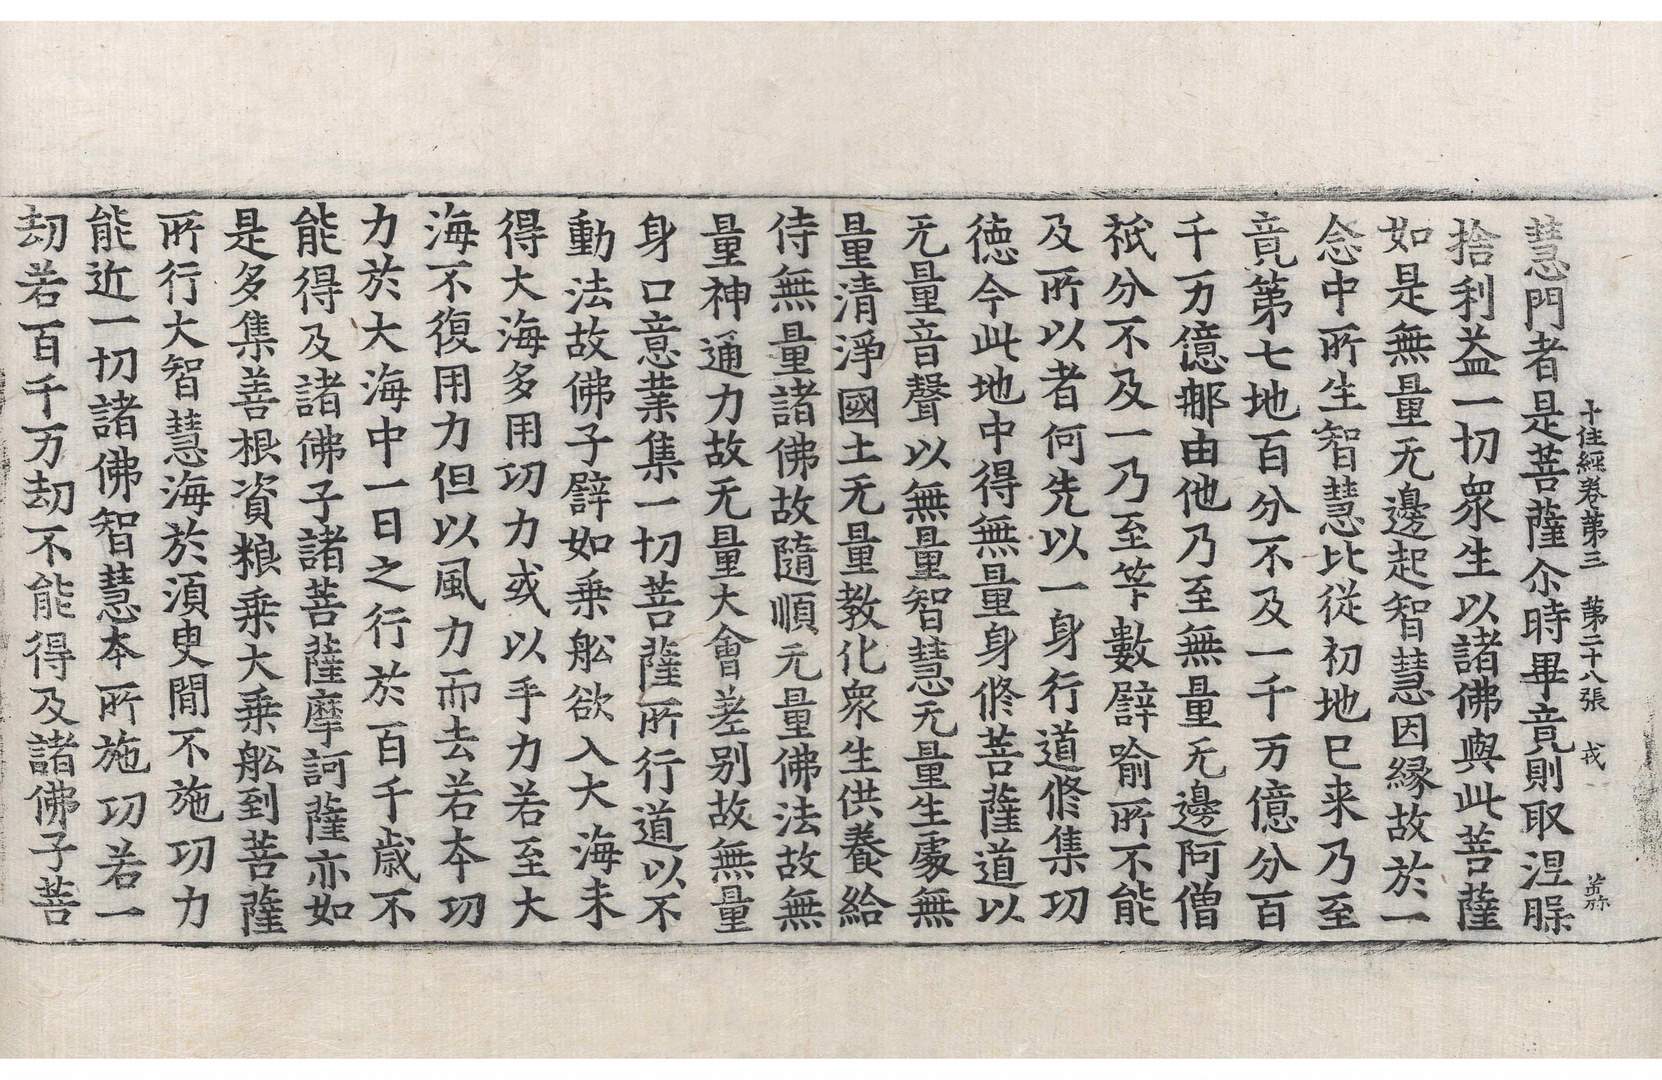 十住經卷第三　第二十八張　戎
慧門者是菩薩尒時畢竟則取涅𦜑
捨利益一切衆生以諸佛與此菩薩
如是無量无邊起智慧因緣故於一
念中所生智慧比從初地已来乃至
竟第七地百分不及一千万億分百
千万億那由他乃至無量无邊阿僧
祇分不及一乃至筭數譬喻所不能
及所以者何先以一身行道修集功
徳今此地中得無量身修菩薩道以
无量音聲以無量智慧无量生處無
量清淨國土无量教化衆生供養給
侍無量諸佛故隨順无量佛法故無
量神通力故无量大會差别故無量
身口意業集一切菩薩所行道以不
動法故佛子譬如乗舩欲入大海未
得大海多用功力或以手力若至大
海不復用力但以風力而去若本功
力於大海中一日之行於百千歳不
能得及諸佛子諸菩薩摩訶薩亦如
是多集善根資粮乗大乗舩到菩薩
所行大智慧海於湏臾閒不施功力
能近一切諸佛智慧本所施功若一
劫若百千万劫不能得及諸佛子菩